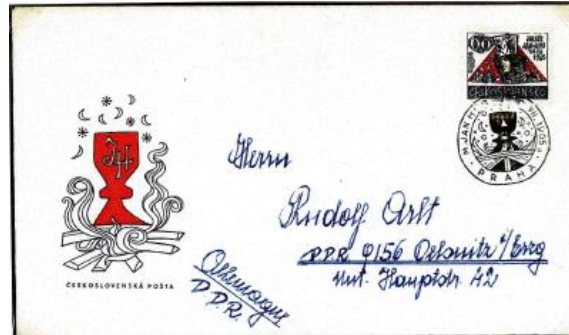 ČESKOSLOVENSKO
JAN H
PRAHA
JH
ČESKOSLOVENSKÁ POŠTA
Herrn
Rudolf Arlt
DDR 9156 Oelsnitz i/Erzg
Unt. Hauptstr. 42
Allemagne
D.D.R.